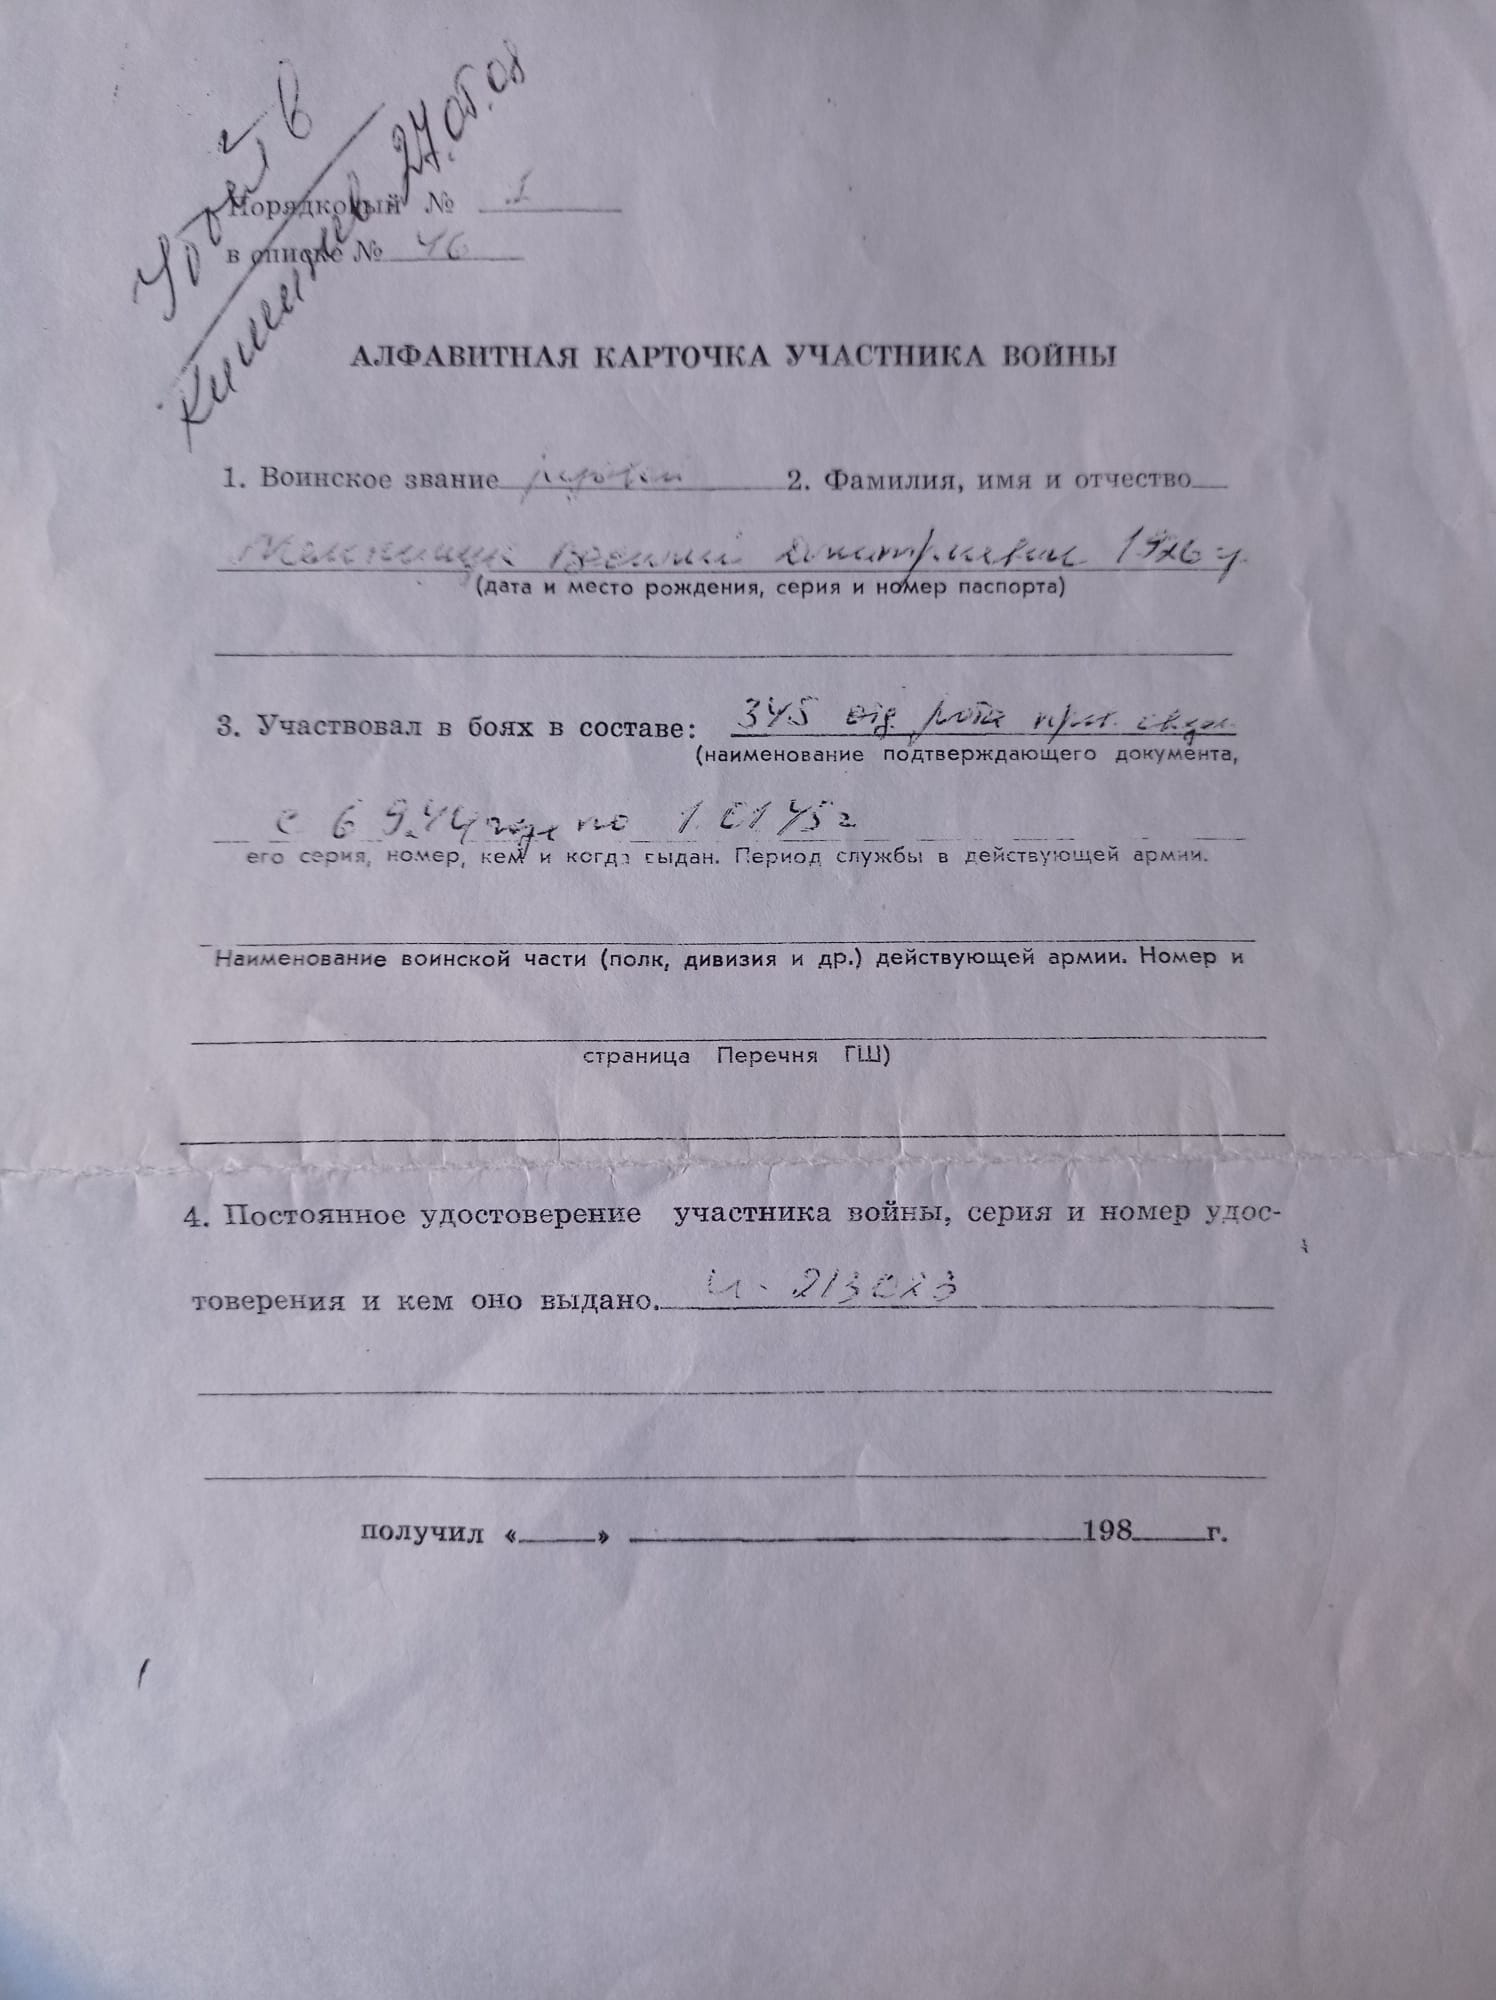 Убыл в
Кишинев 27.05.08
Порядковый № 1
в списке № 46
АЛФАВИТНАЯ КАРТОЧКА УЧАСТНИКА ВОЙНЫ
1. Воинское звание рядовой 2. Фамилия, имя и отчество
Дмитриевич 1926 г.
(дата и место рождения, серия и номер паспорта)
3. Участвовал в боях в составе: 345 рота
(наименование подтверждающего документа,
с 6 9.44 года по 1.01 45 г
его серия, номер, кем и когда выдан. Период службы в действующей армии.
Наименование воинской части (полк, дивизия и др.) действующей армии. Номер и
страница Перечня ГШ)
4. Постоянное удостоверение участника войны, серия и номер удос-
товерения и кем оно выдано. 213023
получил «    » 198    г.